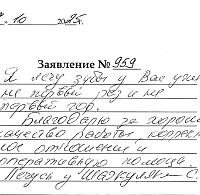 10 2025г.
Заявление № 959
Я лечу зубы у Вас уже
не первый раз и не
первый год.
Благодарю за хорошее
качество работы, коррект
ное отношение и
оперативную помощь.
Лечусь у